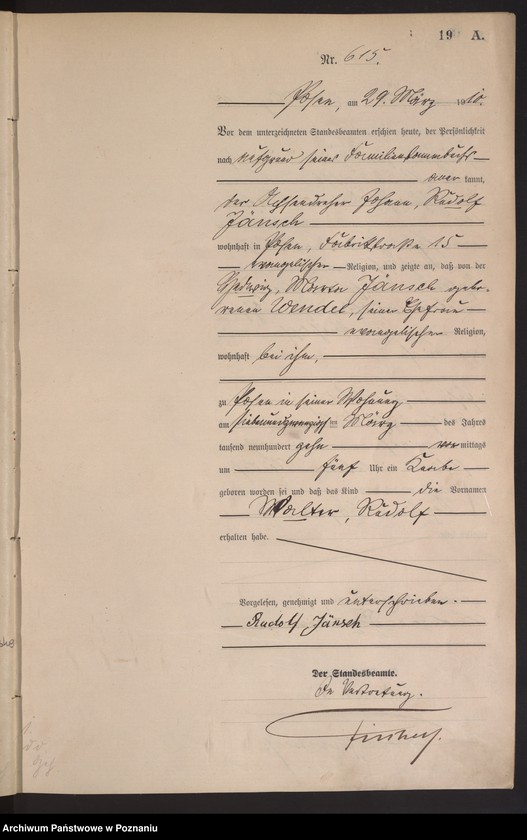 19 A.
Nr. 615.
Posen, am 29. März 1910.
Vor dem unterzeichneten Standesbeamten erschien heute, der Persönlichkeit
nach, auf Grund seines Familienstammbuchs
aner kannt,
der Johann, Rudolf
Jänsch
wohnhaft in Posen, Fabrikstraße 15
evangelischer Religion, und zeigte an, daß von der
Hedwig, Marta Jänsch gebo-
renen Wendel, seiner Ehefrau
evangelischer Religion,
wohnhaft bei ihm,
zu Posen in seiner Wohnung
am siebenundzwanzigsten März des Jahres
tausend neunhundert zehn vor mittags
um fünf Uhr ein Knabe
geboren worden sei und daß das Kind die Vornamen
Walter, Rudolf
erhalten habe.
Vorgelesen, genehmigt und unterschrieben.
Rudolf Jänsch
Der Standesbeamte.
In Vertretung.
Archiwum Państwowe w Poznaniu